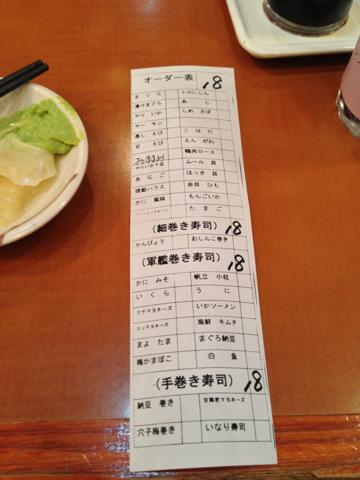 オーダー表 18
まぐろ トロにしん
漬けまぐろ あじ
やりいか しめさば
サーモン
蒸しえび こはだ
甘えび えんがわ
鴨肉ロース
やりいか下足 ムール貝
あなご ほっき貝
焼鮭ハラス 赤貝ひも
かに風味 もんごいか
たまご
(細巻き寿司) 18
かんぴょう おしんこ巻き
(軍艦巻き寿司) 18
かにみそ 帆立小柱
いくら うに
ツナマヨネーズ いかソーメン
コーンマヨネーズ 海鮮キムチ
まよたま まぐろ納豆
梅かまぼこ 白魚
(手巻き寿司) 18
納豆巻き 甘海老マヨネーズ
穴子梅巻き いなり寿司